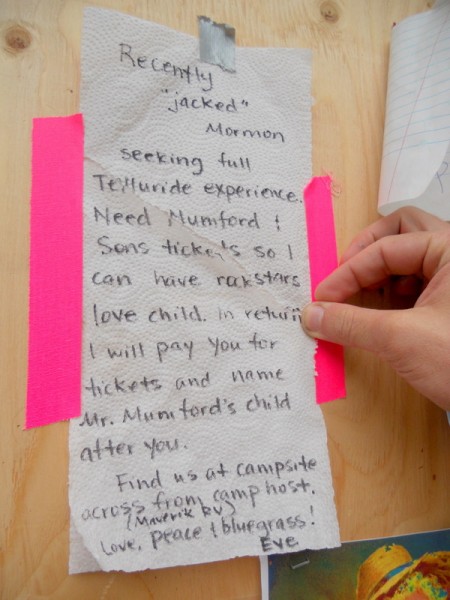 Recently
"jacked"
Mormon
seeking full
Telluride experience.
Need Mumford &
Sons tickets so I
can have rockstars
love child. In return
I will pay you for
tickets and name
Mr. Mumford's child
after you.
Find us at campsite
across from camp host.
(Maverik RV)
Love, peace & bluegrass!
Eve